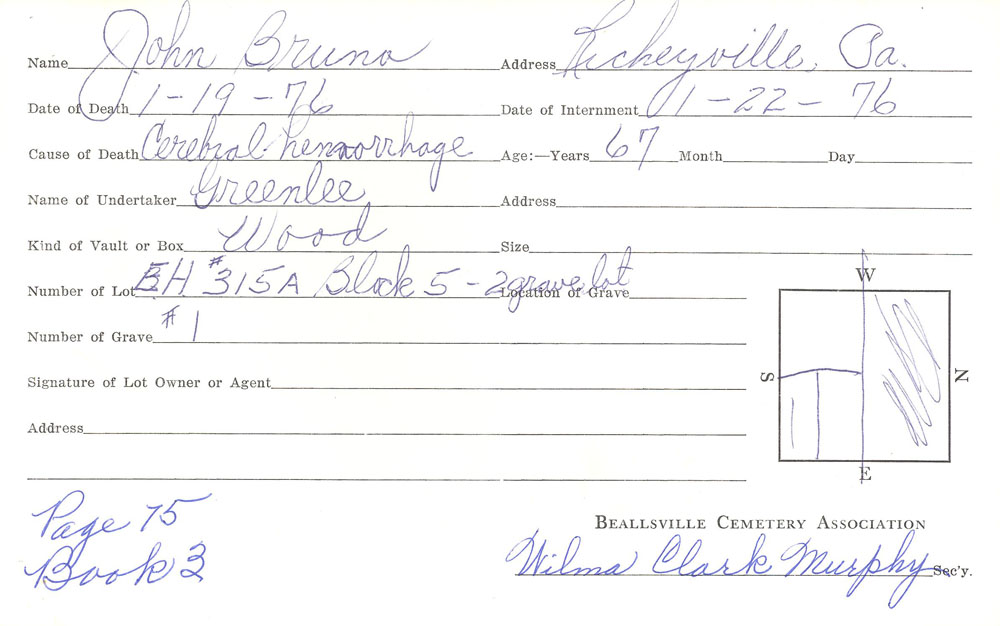 Name John Bruno Address Richeyville, Pa.
Date of Death 1-19-76 Date of Internment 1-22-76
Cause of Death Cerebral hemorrhage Age:—Years 67 Month Day
Name of Undertaker Greenlee Address
Kind of Vault or Box Wood Size
Number of Lot EH #315A Block 5 - 2 grave lot Location of Grave
Number of Grave #1
Signature of Lot Owner or Agent
Address
W
S N
E
Page 75
Book 3
BEALLSVILLE CEMETERY ASSOCIATION
Wilma Clark Murphy Sec'y.